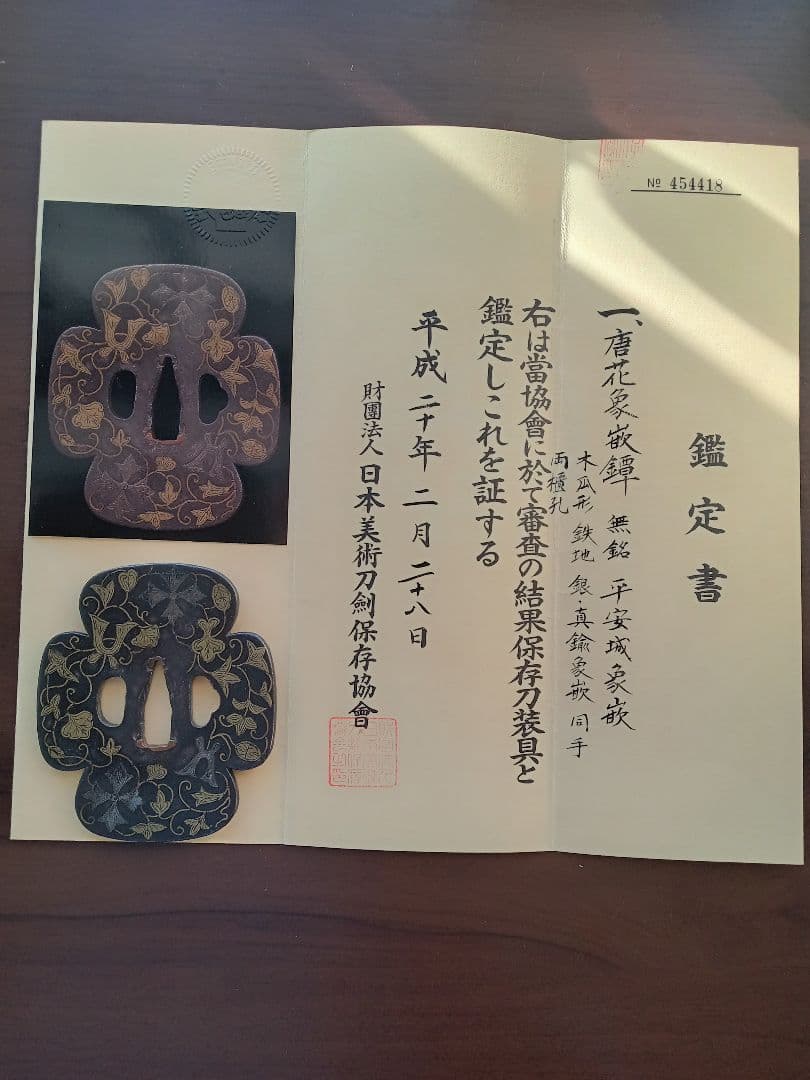 № 454418
鑑定書
一、唐花象嵌鐔 無銘 平安城象嵌
木瓜形 鉄地 銀・真鍮象嵌 同手
両櫃孔
右は當協會に於て審査の結果保存刀装具と
鑑定しこれを証する
平成二十年二月二十八日
財團法人日本美術刀劍保存協會